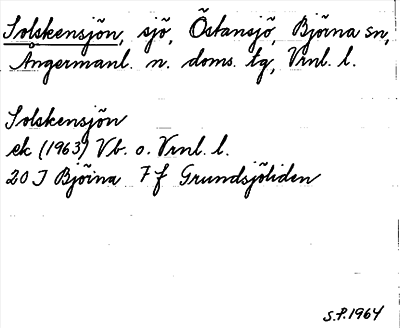 Solskensjön, sjö, Östansjö, Björna sn,
Ångermanl. n. doms. tg, Vrnl. l.
Solskensjön
ek (1963) Vb. o. Vrnl. l.
20 J Björna 7 f Grundsjöliden
S.P. 1964